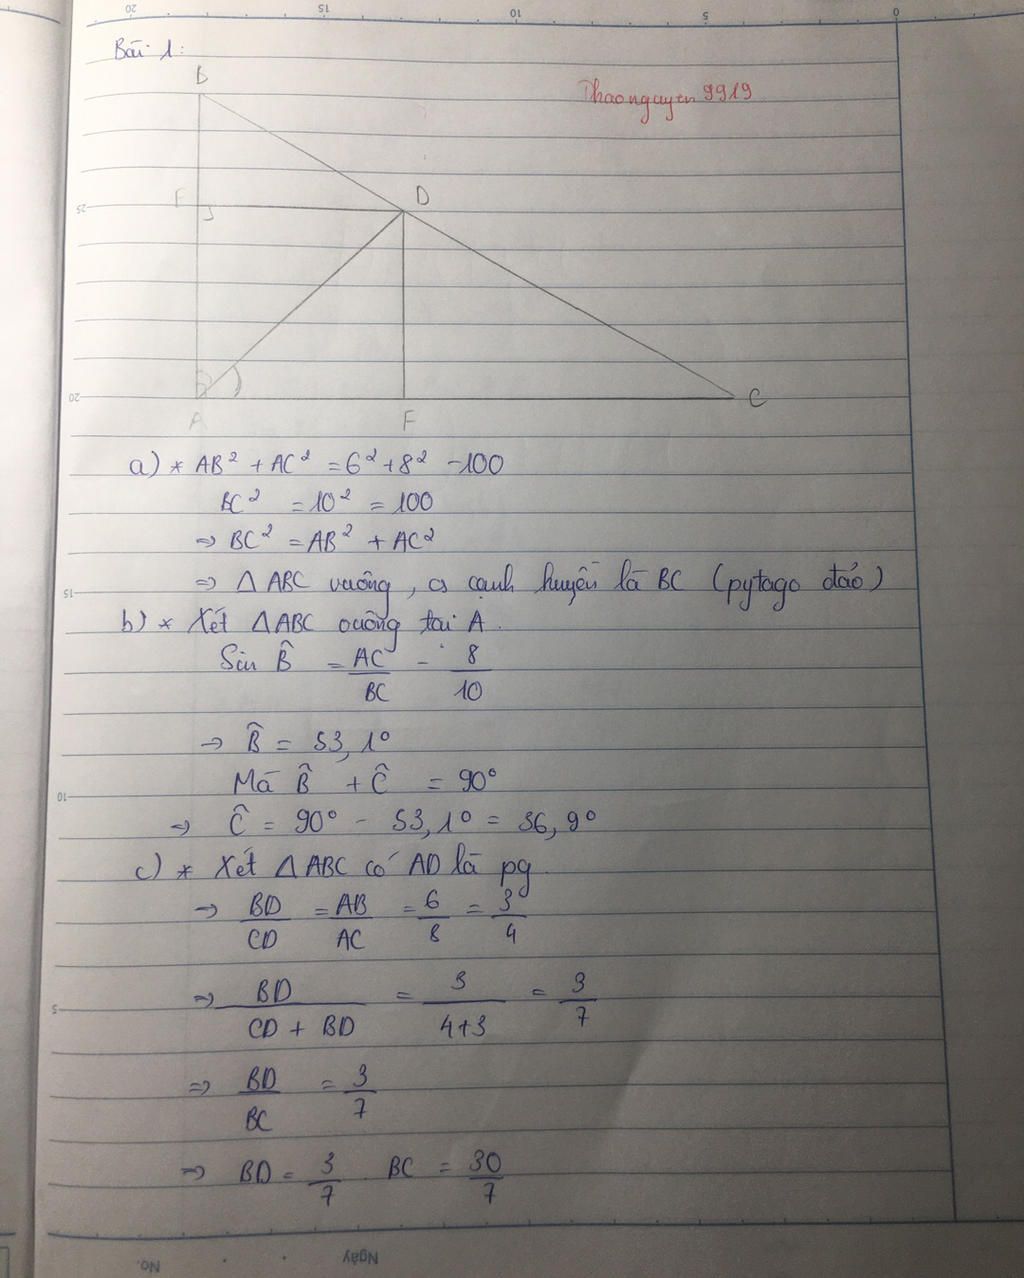 Bài 1:
Thaonguyen 9919
B
E
D
A
F
C
a) * AB² + AC² = 6² + 8² = 100
BC² = 10² = 100
⇒ BC² = AB² + AC²
⇒ △ABC vuông, có cạnh huyền là BC (pytago đảo)
b) * Xét △ABC vuông tại A.
Sin B̂ = AC/BC = 8/10
→ B̂ = 53,1°
Mà B̂ + Ĉ = 90°
⇒ Ĉ = 90° - 53,1° = 36,9°
c) * Xét △ABC có AD là pg.
→ BD/CD = AB/AC = 6/8 = 3/4
⇒ BD/(CD + BD) = 3/(4+3) = 3/7
⇒ BD/BC = 3/7
⇒ BD = 3/7 . BC = 30/7
No.
Ngày
20
15
10
5
0
25
20
15
10
5